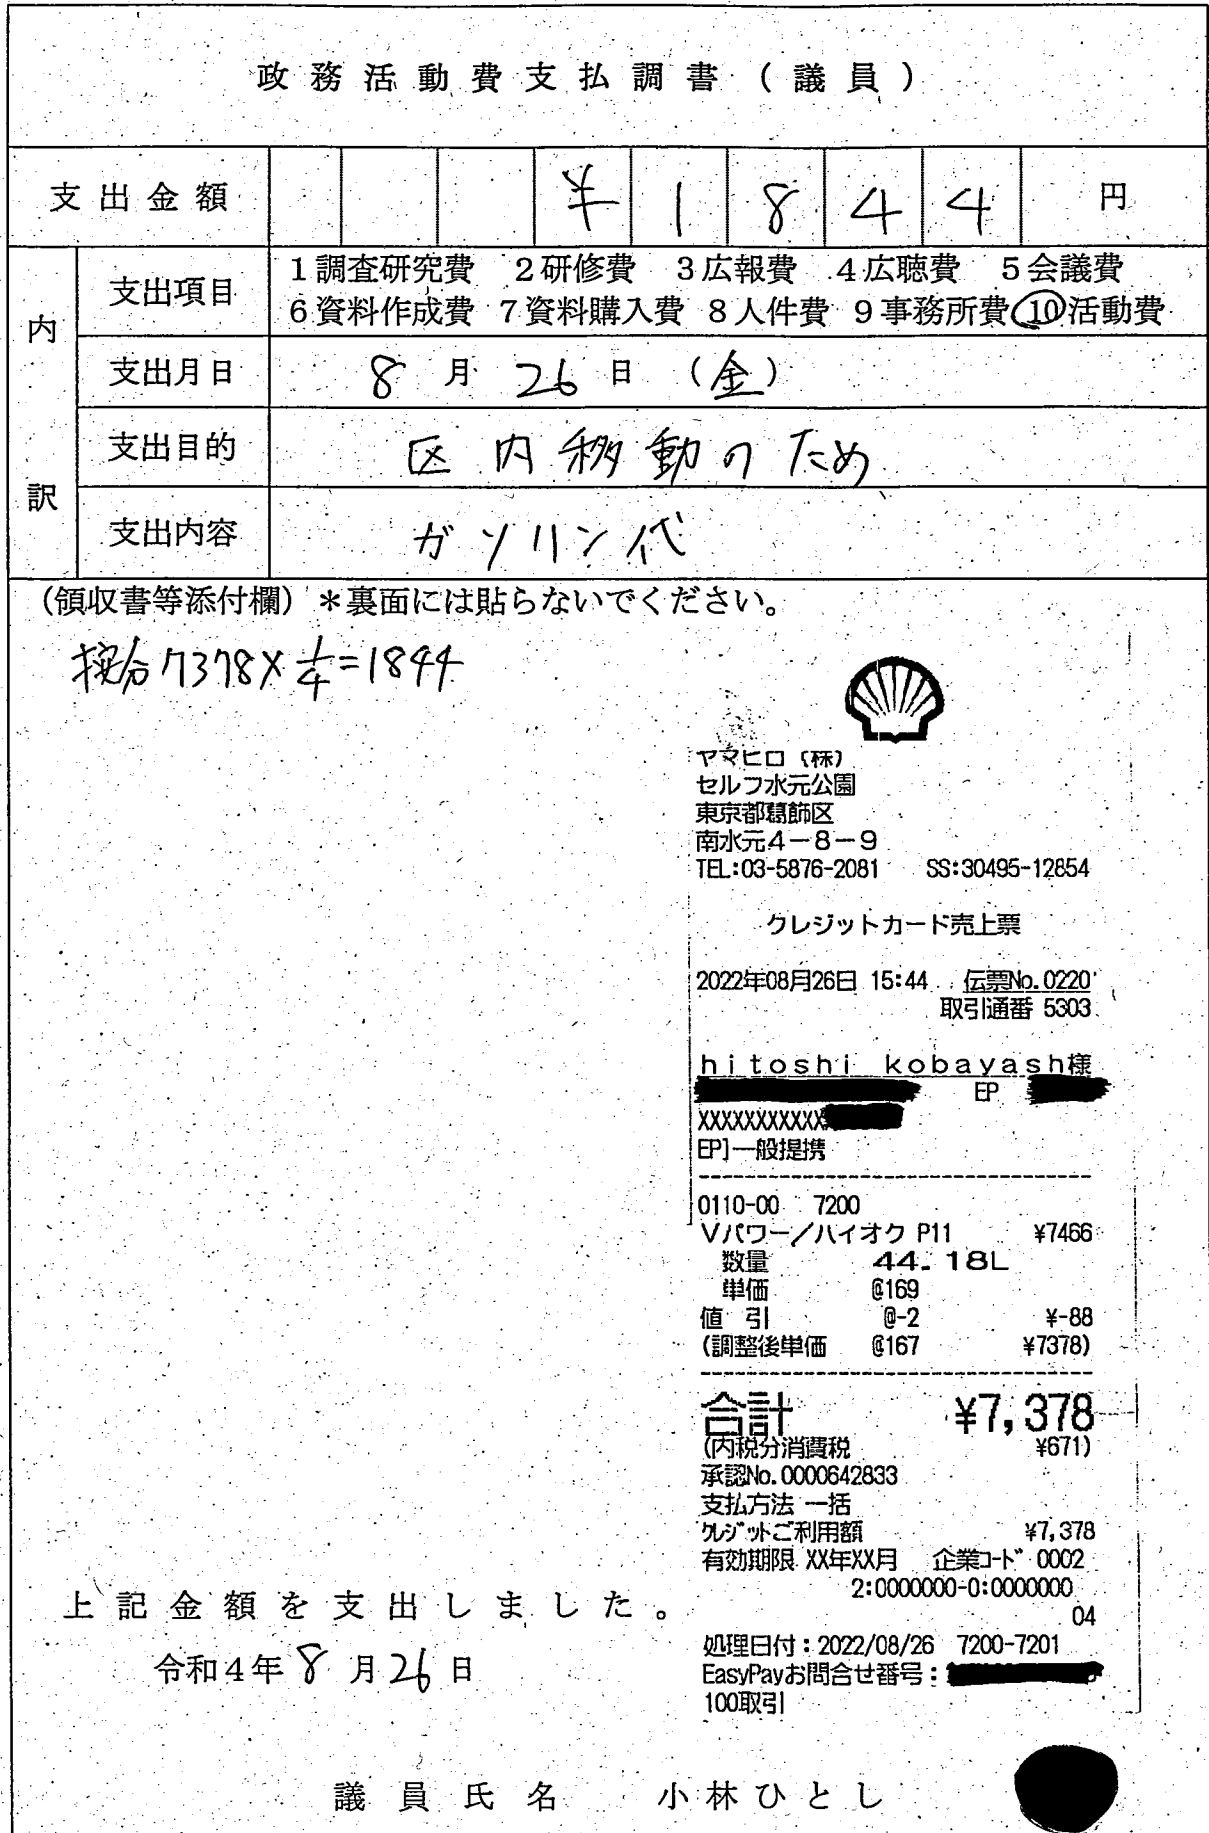 政務活動費支払調書(議員)
支出金額 ¥1844円
内訳
支出項目 1調査研究費 2研修費 3広報費 4広聴費 5会議費
6資料作成費 7資料購入費 8人件費 9事務所費 10活動費
支出月日 8月26日(金)
支出目的 区内移動のため
支出内容 ガソリン代
(領収書等添付欄)*裏面には貼らないでください。
按分7378×1/4=1844
ヤマヒロ(株)
セルフ水元公園
東京都葛飾区
南水元4-8-9
TEL:03-5876-2081 SS:30495-12854
クレジットカード売上票
2022年08月26日 15:44 伝票No.0220
取引通番 5303
hitoshi kobayash様
EP
XXXXXXXXXXX
EP]一般提携
0110-00 7200
Vパワー/ハイオク P11 ¥7466
数量 44.18L
単価 @169
値引 @-2 ¥-88
(調整後単価 @167 ¥7378)
合計 ¥7,378
(内税分消費税 ¥671)
承認No.0000642833
支払方法 一括
クレジットご利用額 ¥7,378
有効期限 XX年XX月 企業コード 0002
2:0000000-0:0000000
04
処理日付:2022/08/26 7200-7201
EasyPayお問合せ番号:
100取引
上記金額を支出しました。
令和4年8月26日
議員氏名 小林ひとし